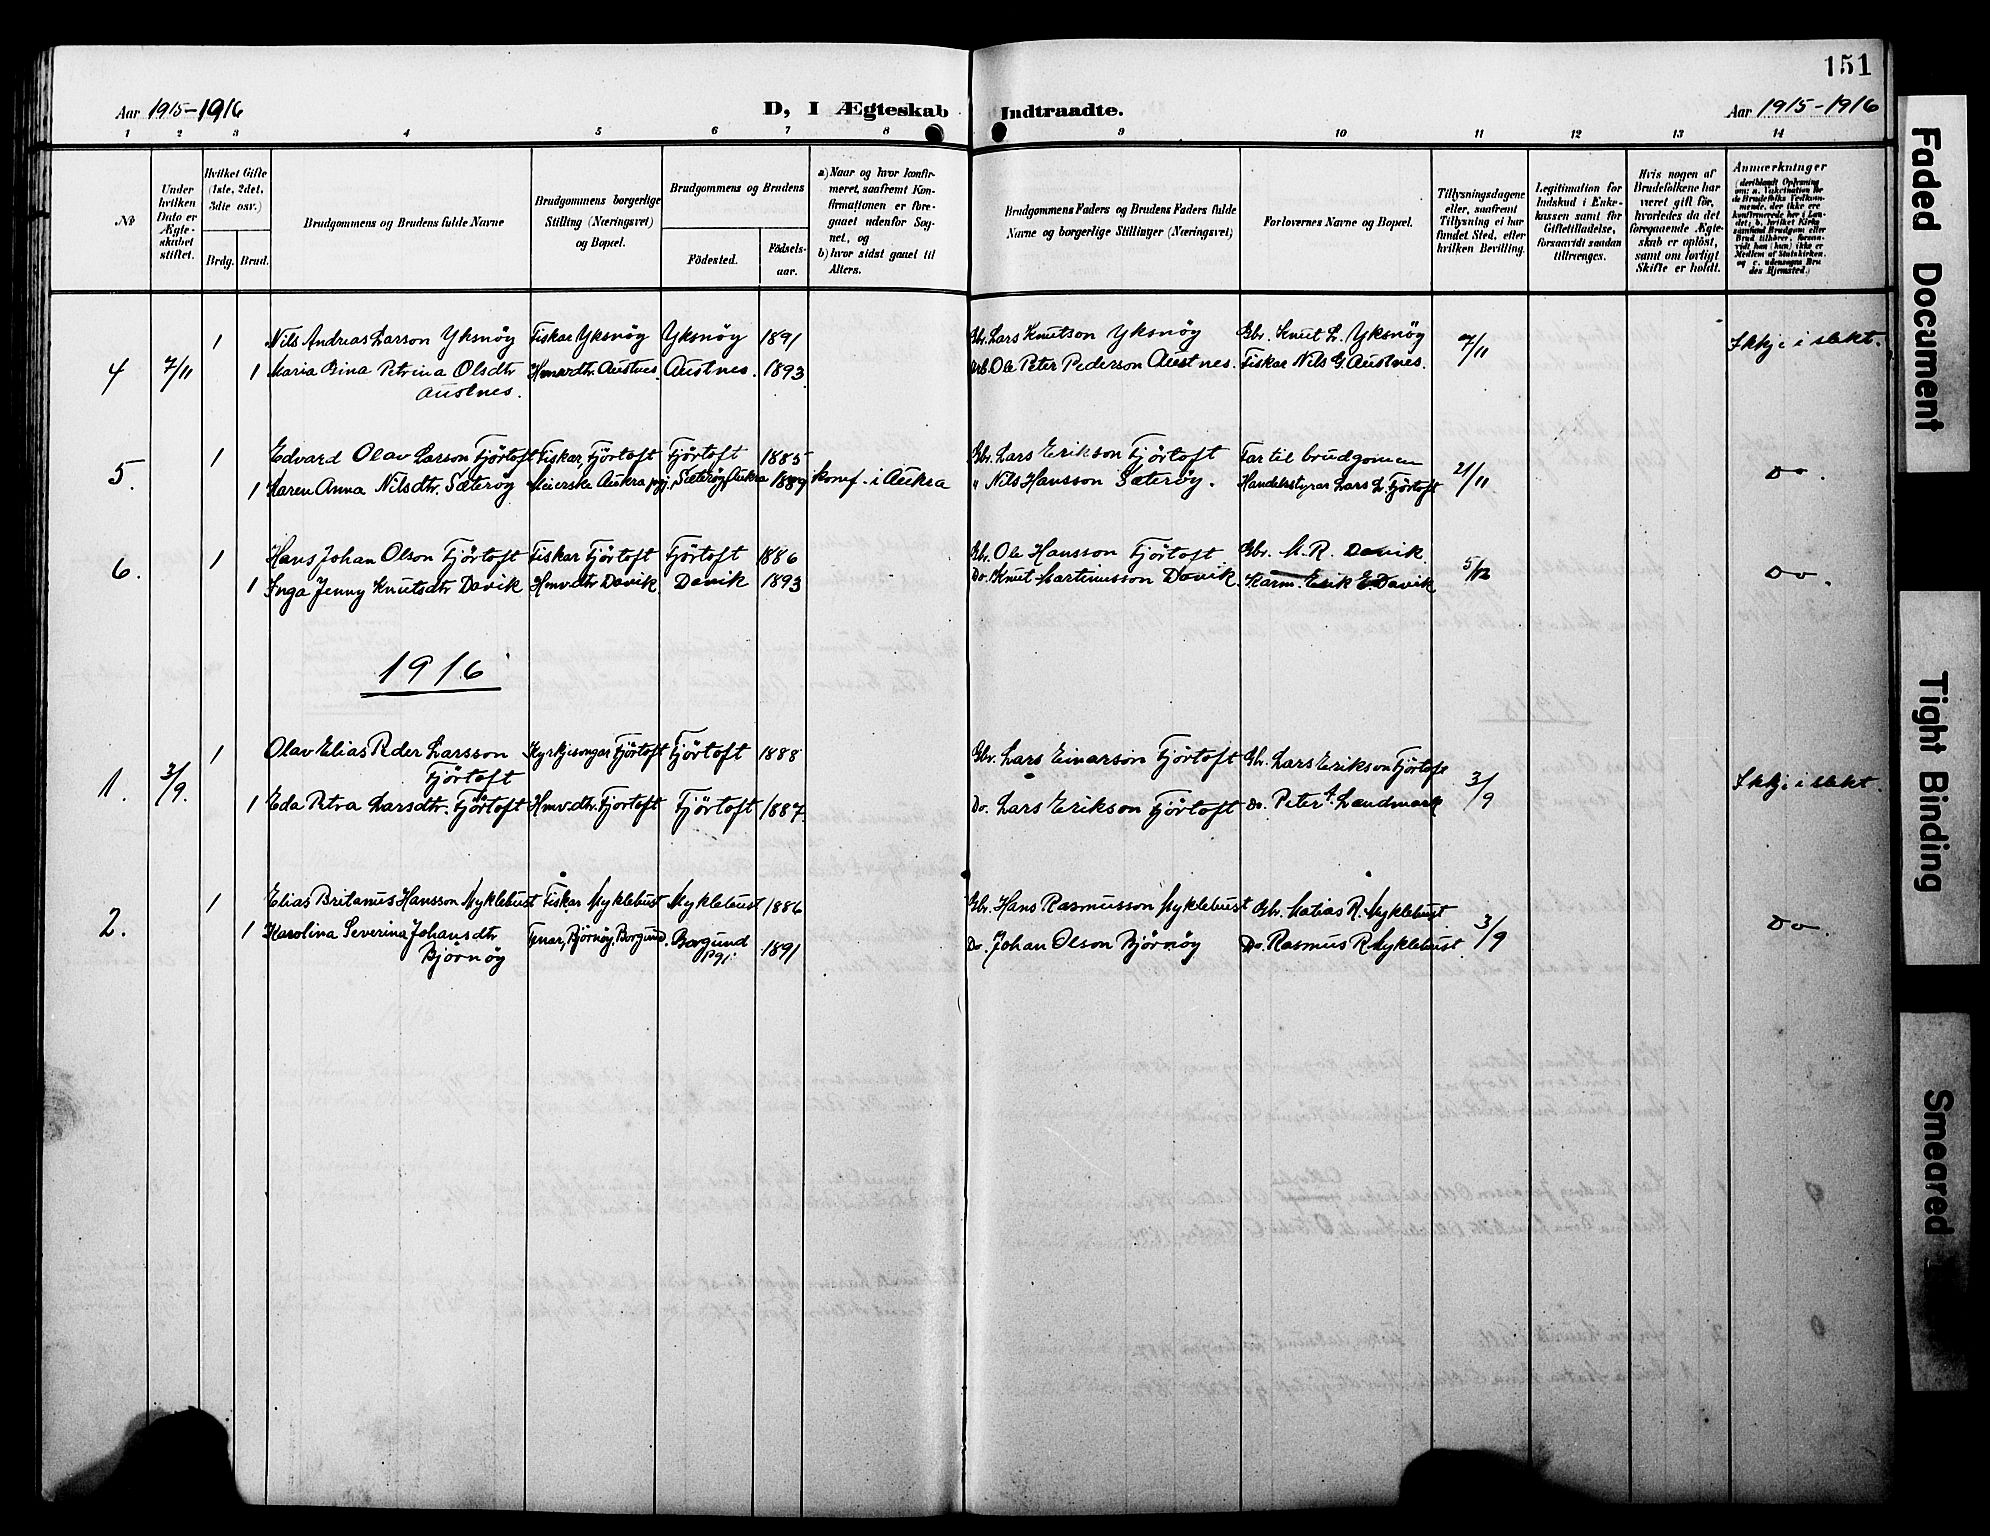 151
Aar 1915-1916
D, I Ægteskab Indtraadte.
Aar 1915-1916
1 2 3 4 5 6 7 8 9 10 11 12 13 14
No
Under hvilken Dato er Ægteskabet stiftet.
Hvilket Gifte (1ste, 2det, 3die osv.)
Brdg. Brud.
Brudgommens og Brudens fulde Navne
Brudgommens borgerlige Stilling (Næringsvei) og Bopæl.
Brudgommens og Brudens
Fødested.
Fødselsaar.
a) Naar og hvor konfirmeret, saafremt Konfirmationen er foregaaet udenfor Sognet, og
b) hvor sidst gaaet til Alters.
Brudgommens Faders og Brudens Faders fulde Navne og borgerlige Stillinger (Næringsvei)
Forlovernes Navne og Bopæl.
Tillysningsdagene eller, saafremt Tillysning ei har fundet Sted, efter hvilken Bevilling.
Legitimation for Indskud i Enkekassen samt for Giftetilladelse, forsaavidt saadan tiltrænges.
Hvis nogen af Brudefolkene har været gift før, hvorledes da det foregaaende Ægteskab er opløst, samt om lovligt Skifte er holdt.
Anmærkninger
(deriblandt Oplysning om: a. Vakcination for de Brudefolks Vedkommende, der ikke ere konfirmerede her i Landet; b. hvilket Kirkesamfund Brudgom eller Brud tilhører, forsaavidt han (hun) ikke er Medlem af Statskirken, og c. udensogns Brudes Hjemsted.)
4 7/11 1 Nils Andreas Larson Yksnøy Fiskar Yksnøy Yksnøy 1891 Gbr. Lars Knutson Yksnøy Gbr. Knut L. Yksnøy 7/11 Ikkje i slekt.
1 Maria Bina Petrina Olsdtr Hmvrdtr. Austnes. Austnes. 1893 Ole Peter Pederson Austnes. Fiskar Nils G. Austnes.
Austnes.
5. 1 Edvard Olav Larson Fjörtoft Fiskar, Fjörtoft Fjörtoft 1885 Gbr. Lars Erikson Fjörtoft Far til brudgomen 21/11 Do.
1 Karen Anna Nilsdtr. Sæterøy Meierske Aukra pgj. Sæterøy, Aukra konf. i Aukra " Nils Hansson Sæterøy. Handelsstyrar Lars L. Fjörtoft
6. 1 Hans Johan Olson Fjörtoft Fiskar Fjörtoft Fjörtoft 1886 Gbr. Ole Hansson Fjörtoft Gbr. M. R. Davik 5/12 Do.
1 Inga Jenny Knutsdtr Davik Hmvdtr Davik Davik 1893 Do. Knut Martinusson Davik Erik E. Davik
1916
1. 3/9. 1 Olav Elias Peder Larsson Kyrkjesongar Fjörtoft Fjörtoft 1888 Gbr. Lars Einarson Fjörtoft Gbr. Lars Erikson Fjörtoft 3/9 Ikkje i slekt.
Fjörtoft
1 Eda Petra Larsdtr. Fjörtoft Hmvdtr. Fjörtoft Fjörtoft 1887. Do. Lars Erikson Fjörtoft Do. Peter Landmark
2. 1 Elias Britanus Hansson Myklebust Fiskar Myklebust Myklebust 1886 Gbr. Hans Rasmusson Myklebust Gbr. Matias R. Myklebust 3/9 Do.
1 Karolina Severina Johansdtr Bjørnøy, Borgund. Borgund 1891 Do. Johan Olson Bjørnøy Do. Rasmus R. Myklebust.
Bjørnøy pgj.
Faded Document
Tight Binding
Smeared